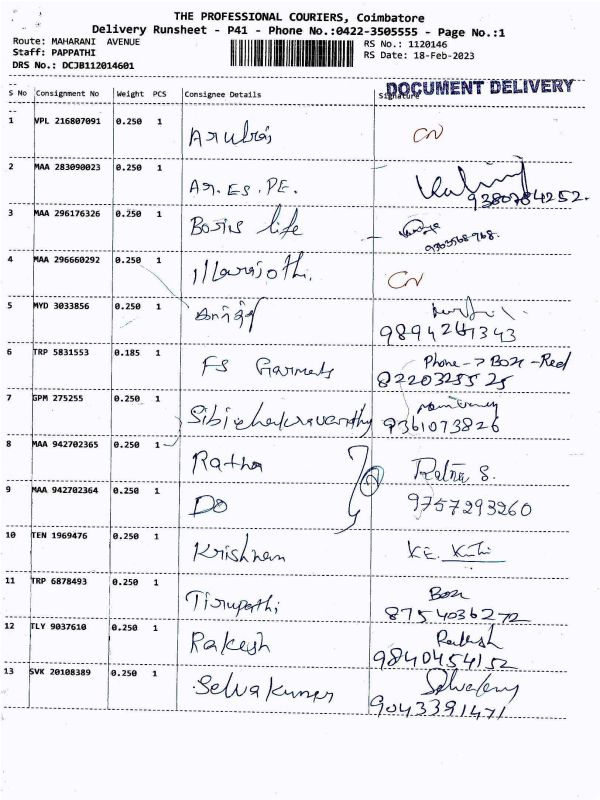 THE PROFESSIONAL COURIERS, Coimbatore
Delivery Runsheet - P41 - Phone No.:0422-3505555 - Page No.:1
Route: MAHARANI AVENUE RS No.: 1120146
Staff: PAPPATHI RS Date: 18-Feb-2023
DRS No.: DCJB112014601
DOCUMENT DELIVERY
S No Consignment No Weight PCS Consignee Details Signature
1 VPL 216807091 0.250 1 CN
2 MAA 283090023 0.250 1 AR. ES. PE.
9380784252.
3 MAA 296176326 0.250 1 Boris life
4 MAA 296660292 0.250 1 CN
5 MYD 3033856 0.250 1
9894261343
6 TRP 5831553 0.185 1 FS Garments Phone -> Box - Red
8220325525
7 GPM 275255 0.250 1 Sibichakravarthy 9361073826
8 MAA 942702365 0.250 1 Ratha Ratna S.
9 MAA 942702364 0.250 1 DO 9757293260
10 TEN 1969476 0.250 1 Krishnan
11 TRP 6878493 0.250 1 Tirupathi Box
8754036272
12 TLY 9037610 0.250 1 Rakesh Rakesh
9840454152
13 SVK 20108389 0.250 1 Selvakumar
9043391471